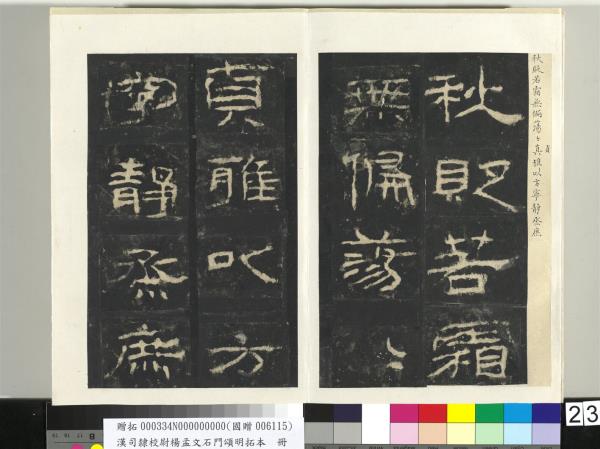 秋貯若霜
無偏蕩〻
貞雅以方
寧靜烝庶
秋貯若霜無偏蕩〻真雅以方寧靜烝庶
貞
贈拓 000334N000000000(國贈 006115)
漢司隸校尉楊孟文石門頌明拓本 冊
23